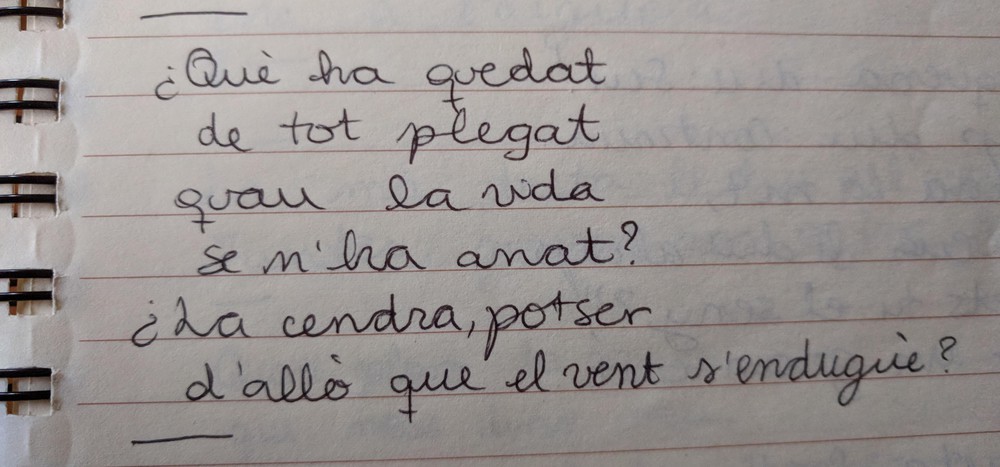 ¿Què ha quedat
de tot plegat
quan la vida
se n'ha anat?
¿La cendra, potser
d'allò que el vent s'enduguè?